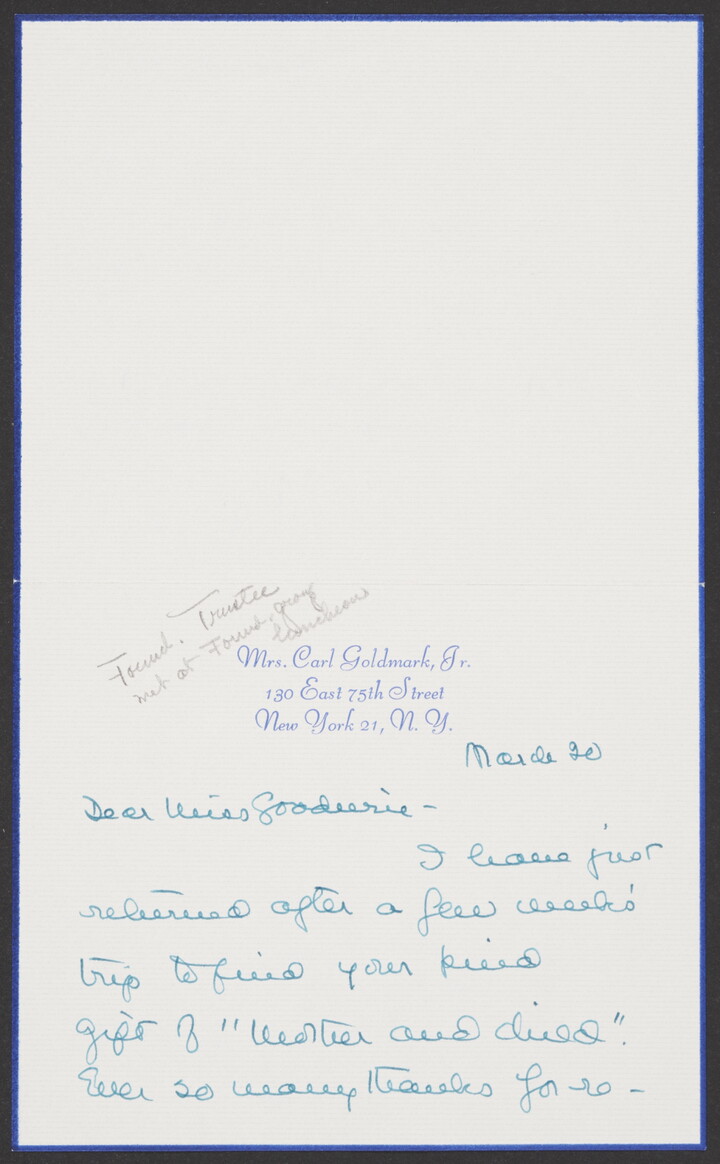 Found. Trustee
met at Found. group
luncheon
Mrs. Carl Goldmark, Jr.
130 East 75th Street
New York 21, N. Y.
March 20
Dear Miss Goodwin –
I have just
returned after a few weeks'
trip to find your kind
gift of "Mother and Child".
Ever so many thanks for re-